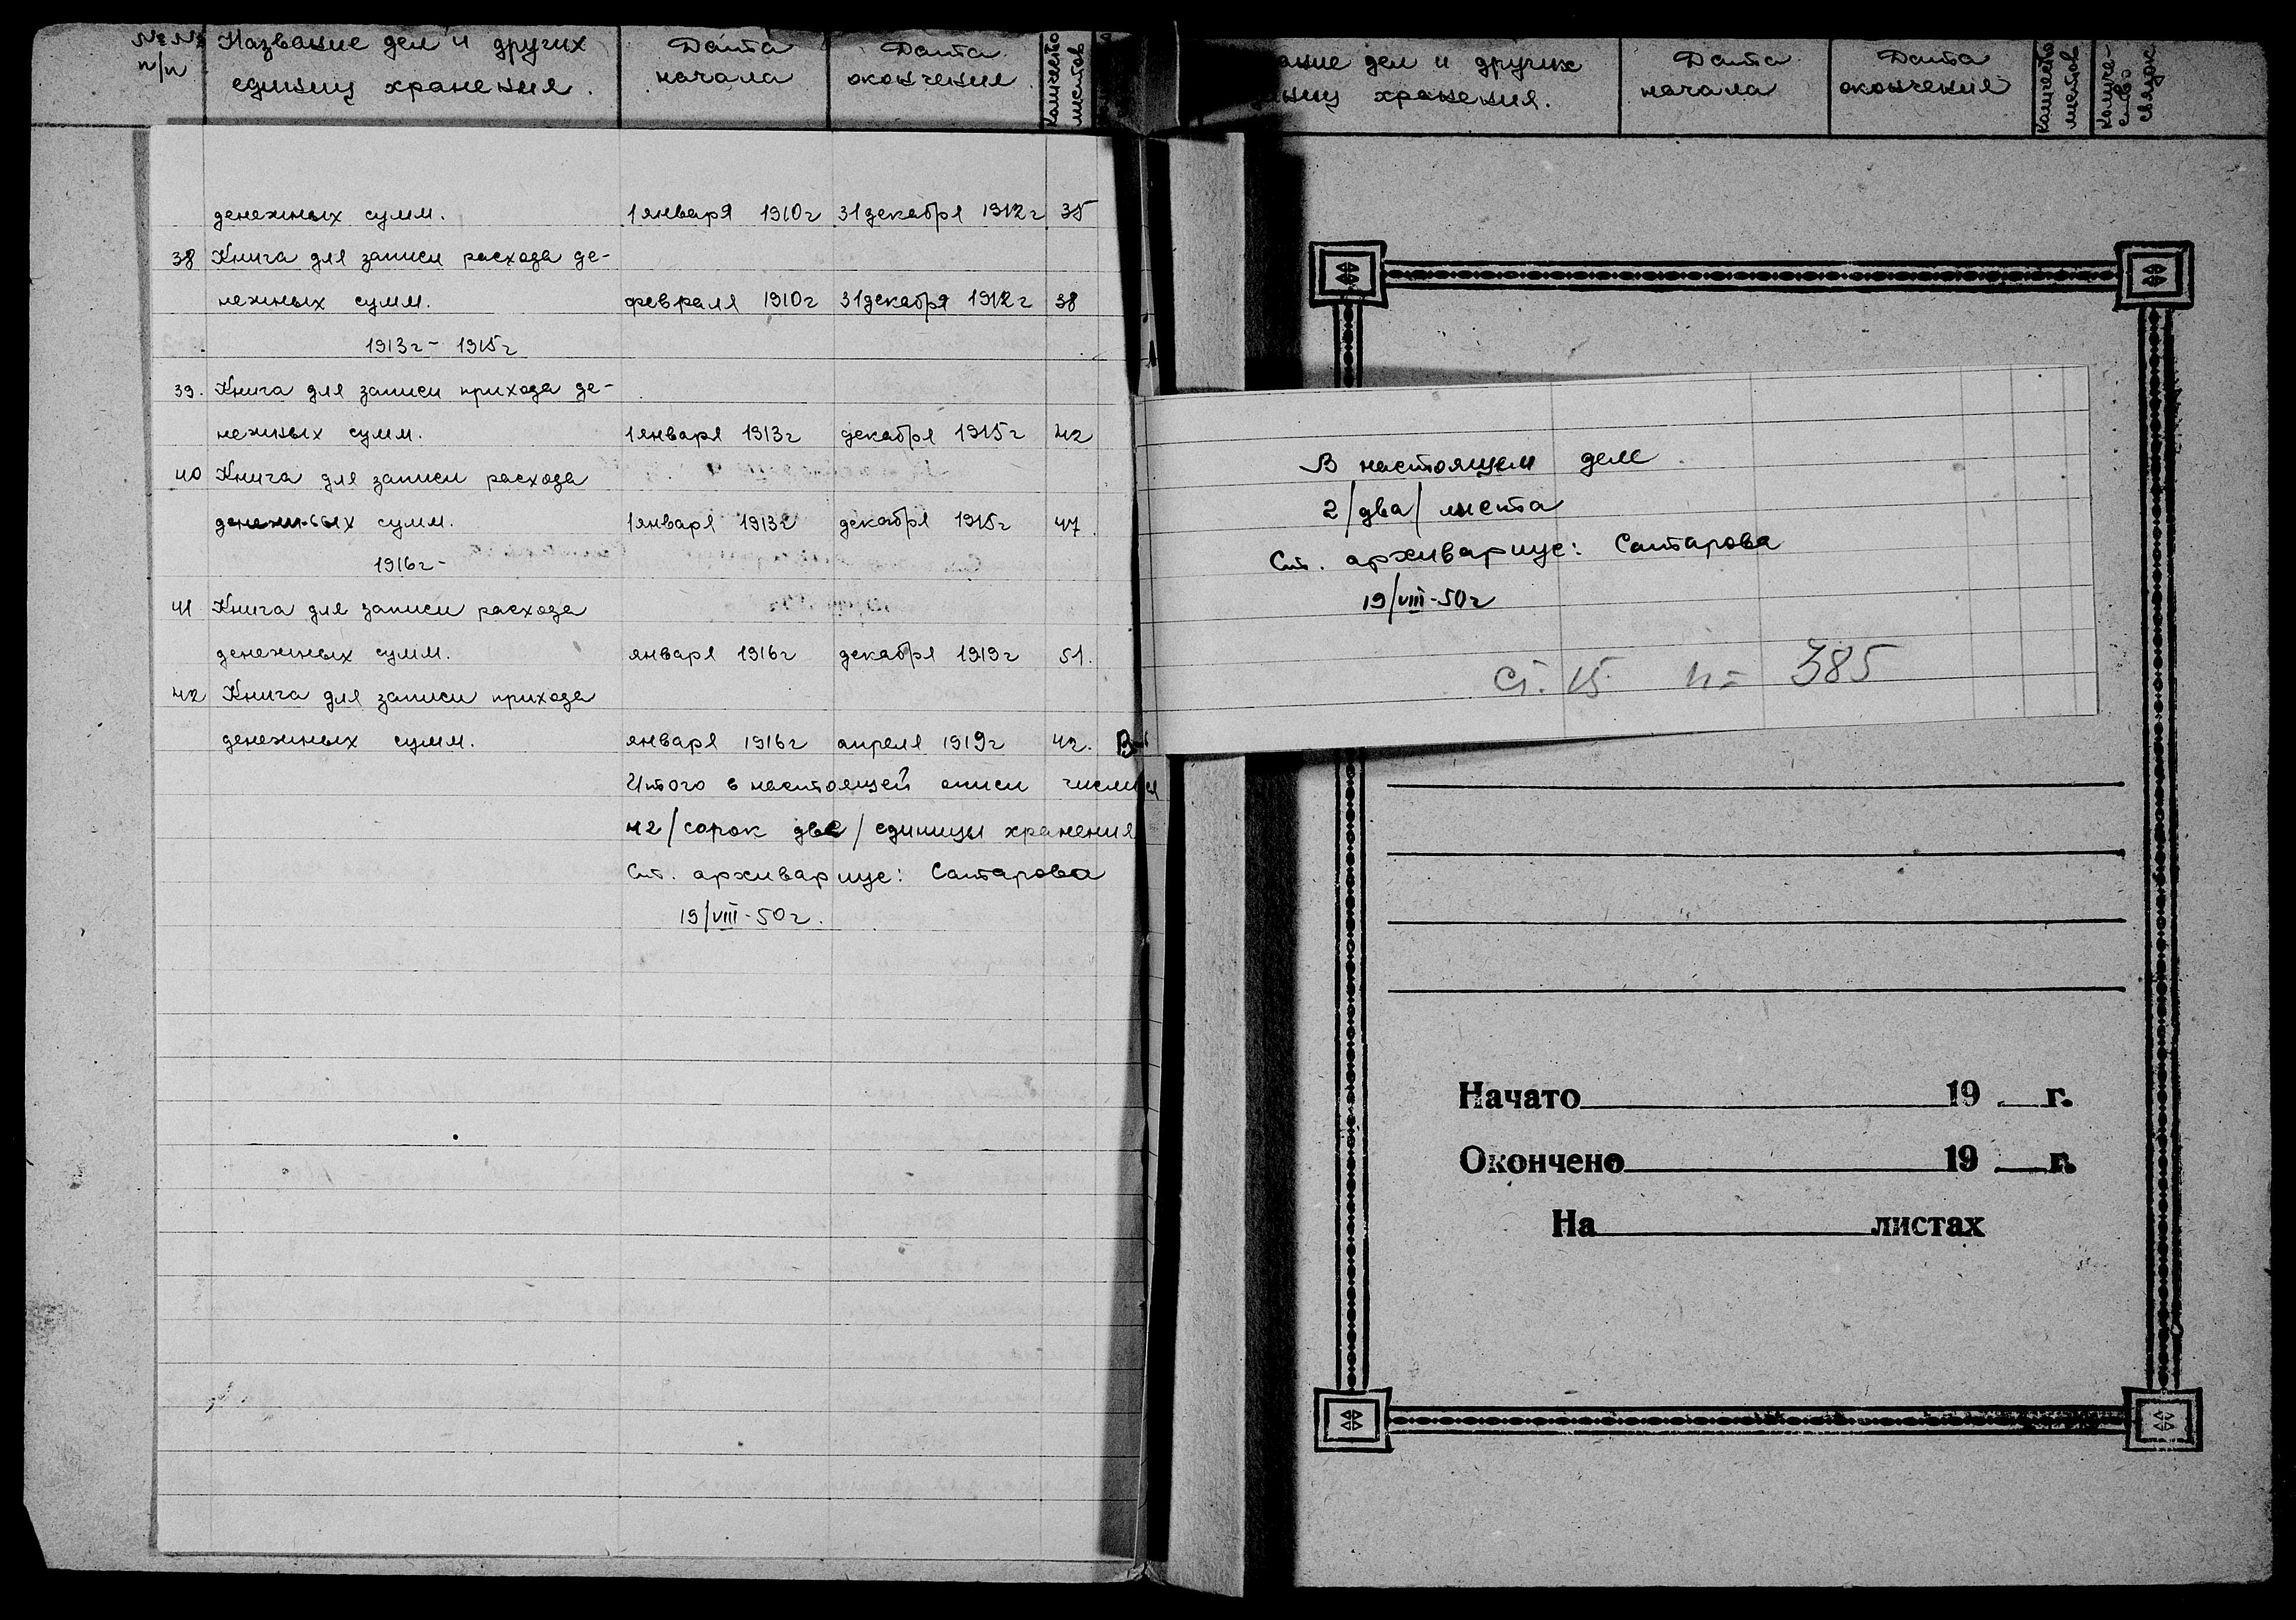 №№ п/п Название дел и других единиц хранения. Дата начала Дата окончения Количество листов
денежных сумм. 1 января 1910г 31 декабря 1912г 35
38 Книга для записи расхода де-
нежных сумм. февраля 1910г 31 декабря 1912г 38
1913г - 1915г
39. Книга для записи прихода де-
нежных сумм. 1 января 1913г декабря 1915г 42
40 Книга для записи расхода
денежных сумм. 1 января 1913г декабря 1915г 47.
1916г-
41 Книга для записи расхода
денежных сумм. января 1916г декабря 1919г 51.
42 Книга для записи прихода
денежных сумм. января 1916г апреля 1919г 42.
Итого в настоящей описи числится
42/сорок две/единицы хранения
Ст. архивариус: Саттарова
19/VIII-50г.
ание дел и других
ниц хранения. Дата начала Дата окончения Количество листов Количе-ство связок
В настоящем деле
2/два/ листа
Ст. архивариус: Саттарова
19/VIII-50г
385
Начато 19 г.
Окончено 19 г.
На листах